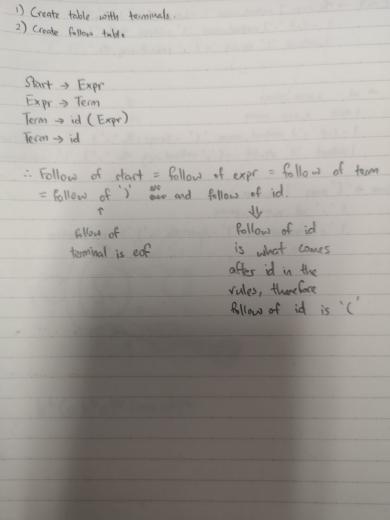 1) Create table with terminals.
2) Create follow table.
Start → Expr
Expr → Term
Term → id (Expr)
Term → id
∴ Follow of start = follow of expr = follow of term
= follow of ')' and follow of id.
↑
follow of
terminal is eof
⇓
Follow of id
is what comes
after id in the
rules, therefore
follow of id is '('